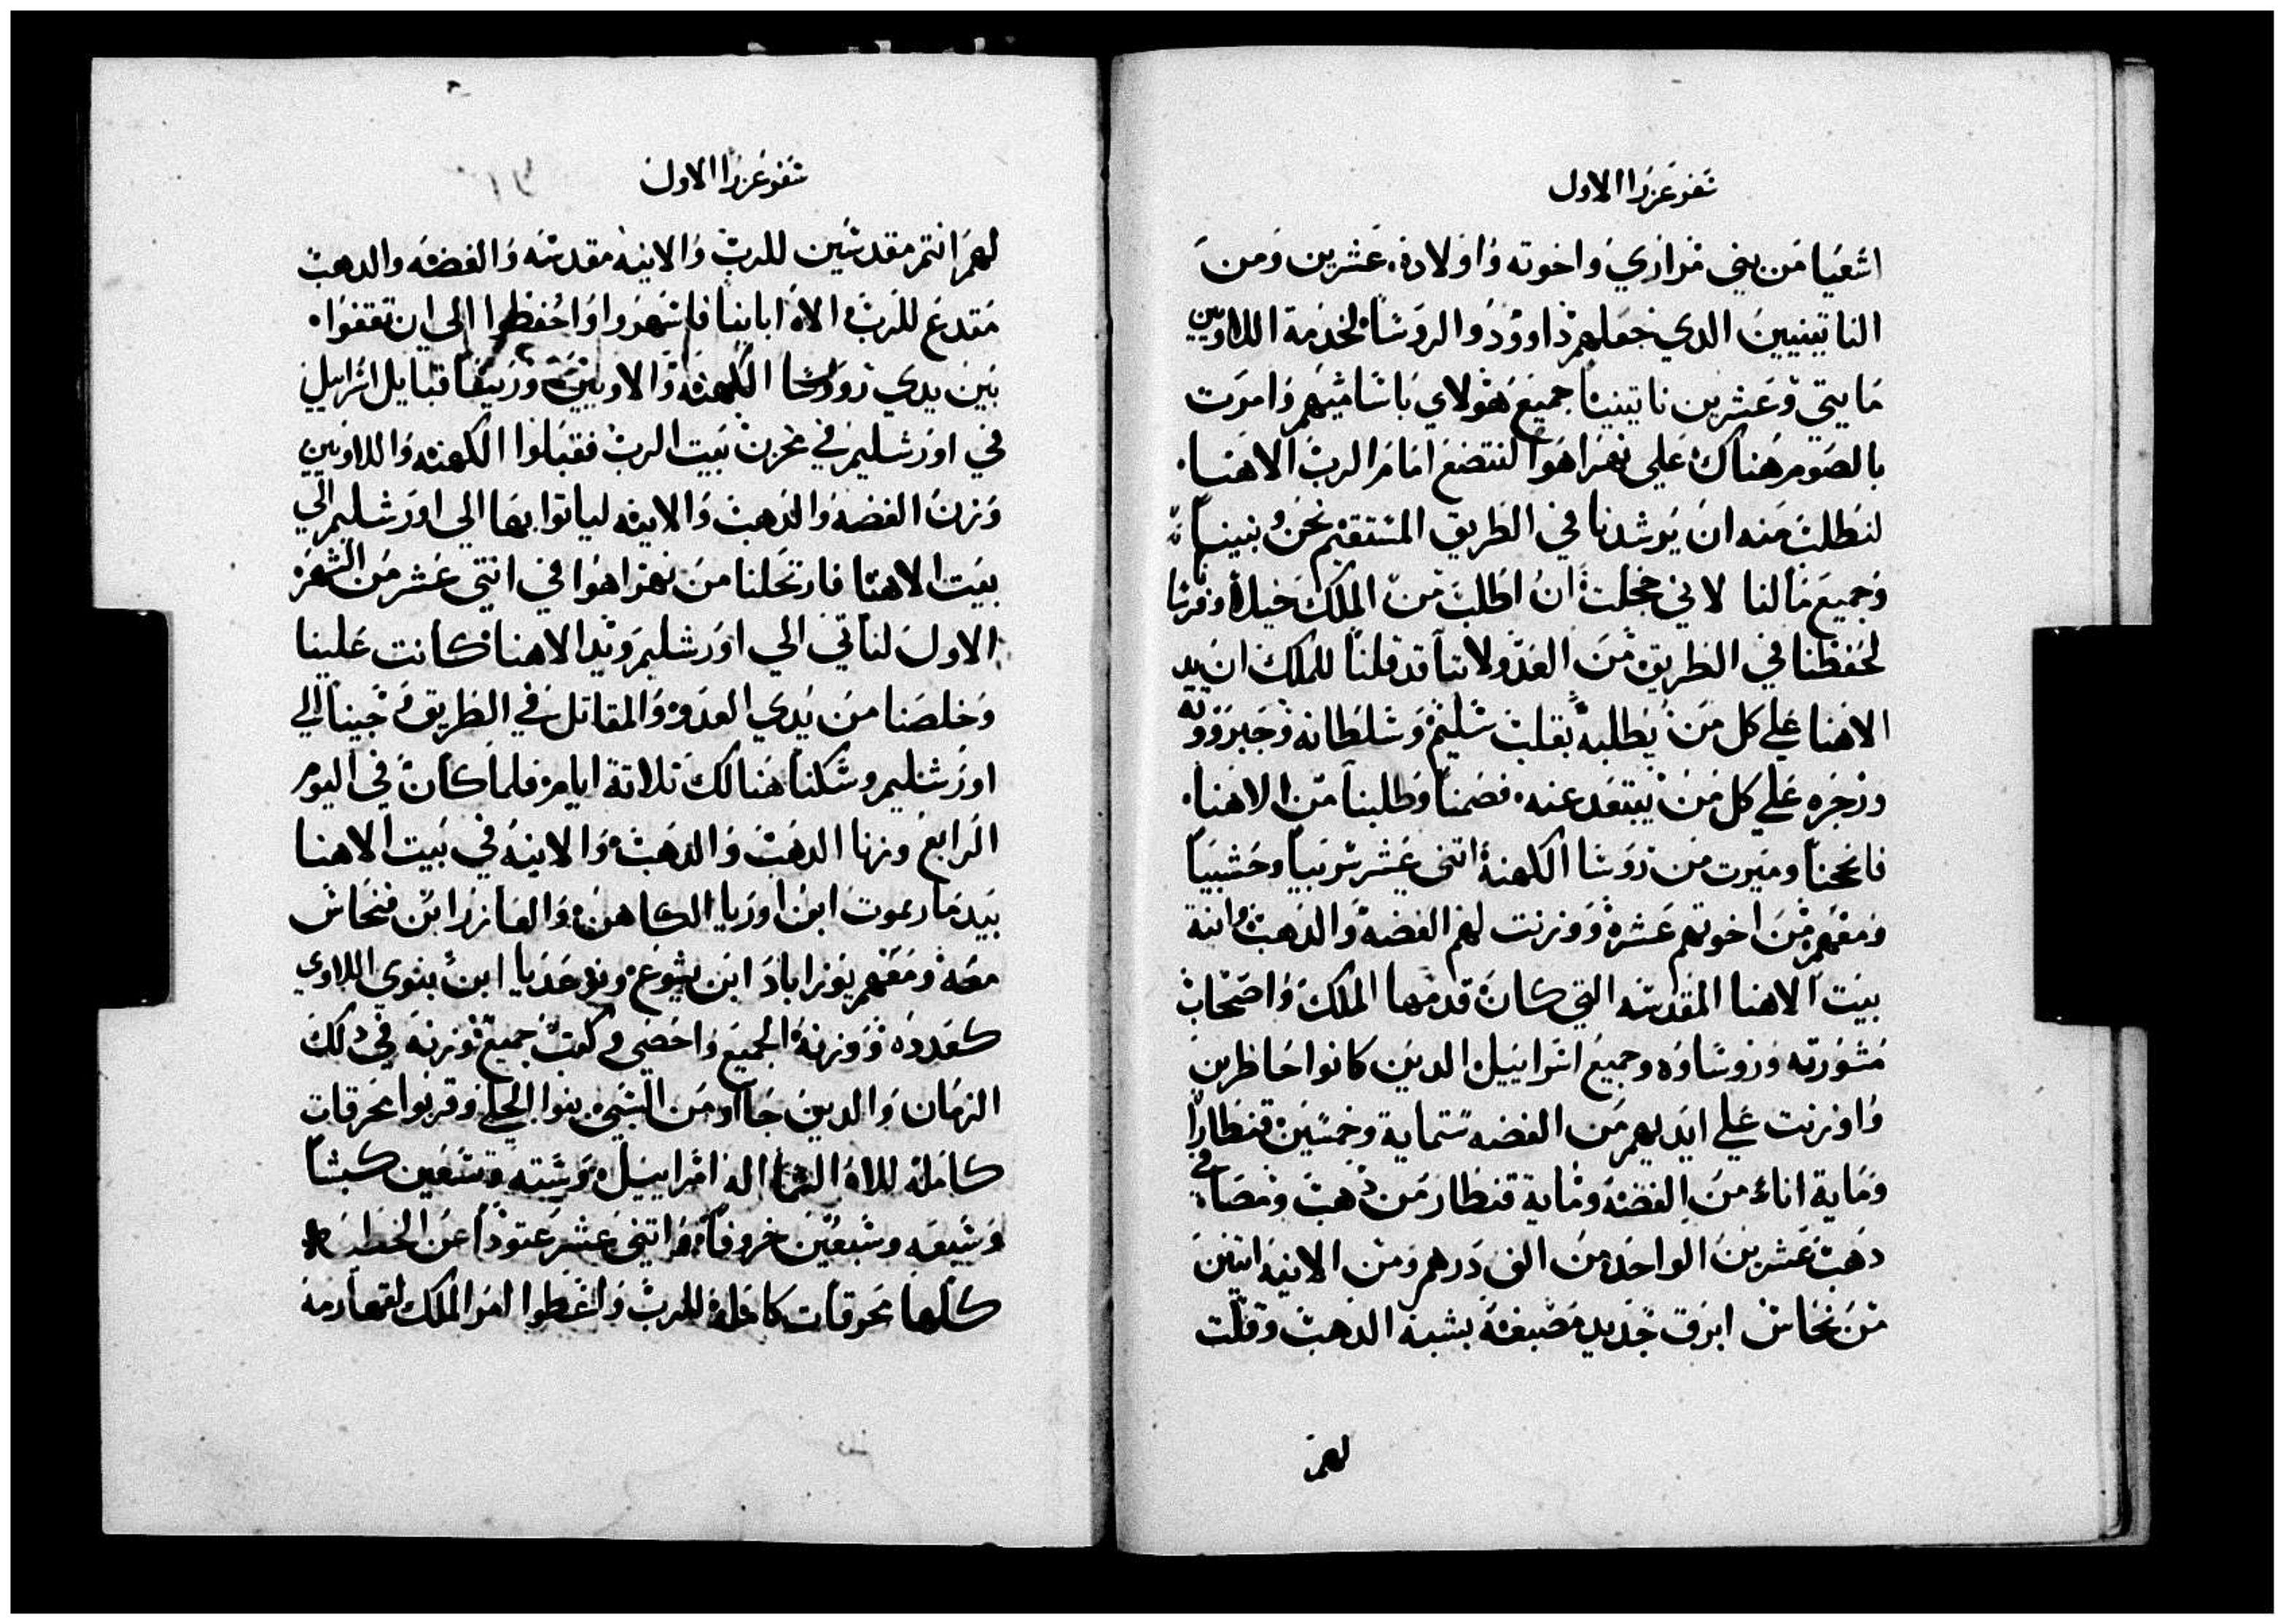 سفر عزرا الاول
اشعيا من بني مراري واخوته واولاده عشرين ومن
الناتينيين الدي جعلهم داوود والروسا لخدمة اللاويين
مايتي وعشرين ناتينيا جميع هولاي باساميهم وامرت
بالصوم هناك علي نهر اهوا لنتضع امام الرب الاهنا
لنطلب منه ان يرشدنا في الطريق المستقيم نحن وبنينا
وجميع مالنا لاني خجلت ان اطلب من الملك خيلا وفرسا
لحفظنا في الطريق من العدو لاننا قد قلنا للملك ان يد
الاهنا علي كل من يطلبه بقلب سليم وسلطانه وجبروته
وزجره علي كل من يبتعد عنه فصمنا وطلبنا من الاهنا
فانجحنا وميزت من روسا الكهنة اتني عشر سربيا وحشبيا
ومعهم من اخوتهم عشره ووزنت لهم الفضه والدهب وانية
بيت الاهنا المقدسه التي كان قدمها الملك واصحاب
مشورته وروساوه وجميع اسراييل الدين كانوا حاظرين
واوزنت علي ايديهم من الفضه ستماية وخمسين قنطارا
وماية اناء من الفضه وماية قنطار من دهب ومصافي
دهب عشرين الواحد من الف درهم ومن الانيه اتنين
من نحاس ابرق جديد مصبغة بشبه الدهب وقلت
لهم
سفر عزرا الاول
لهم انتم مقدسين للرب والانيه مقدسه والفضه والدهب
متدع للرب الاه اباينا فاسهروا واحفظوا الي ان تقفوا
بين يدي روسا الكهنة والاويين وريسا قبايل اسراييل
في اورشليم في مخزن بيت الرب فقبلوا الكهنه واللاويين
وزن الفضه والدهب والانيه لياتوا بها الي اورشليم الي
بيت الاهنا فارتحلنا من نهر اهوا في اتني عشر من الشهر
الاول لناتي الي اورشليم ويد الاهنا كانت علينا
وخلصنا من يدي العدو والمقاتل في الطريق وجينا الي
اورشليم وسكنا هنالك تلاتة ايام فلما كان في اليوم
الرابع وزنا الدهب والدهب والانيه في بيت الاهنا
بيد مارموت ابن اوريا الكاهن والعازر ابن فنحاس
معه ومعهم يوزاباد ابن يشوع ونوحديا ابن بنوي اللاوي
كعدده ووزنة الجميع واحضي وكتب جميع وزنه في دلك
الزمان والدين جااو من السبي بنوا الجلي وقربوا محرقات
كامله للاه اسراييل وسته وتسعين كبشا
وسبعه وسبعين خروفا واتني عشر عتودا عن الخطيه
كلها محرقات كاملة للرب واعطوا امر الملك لقهارمة